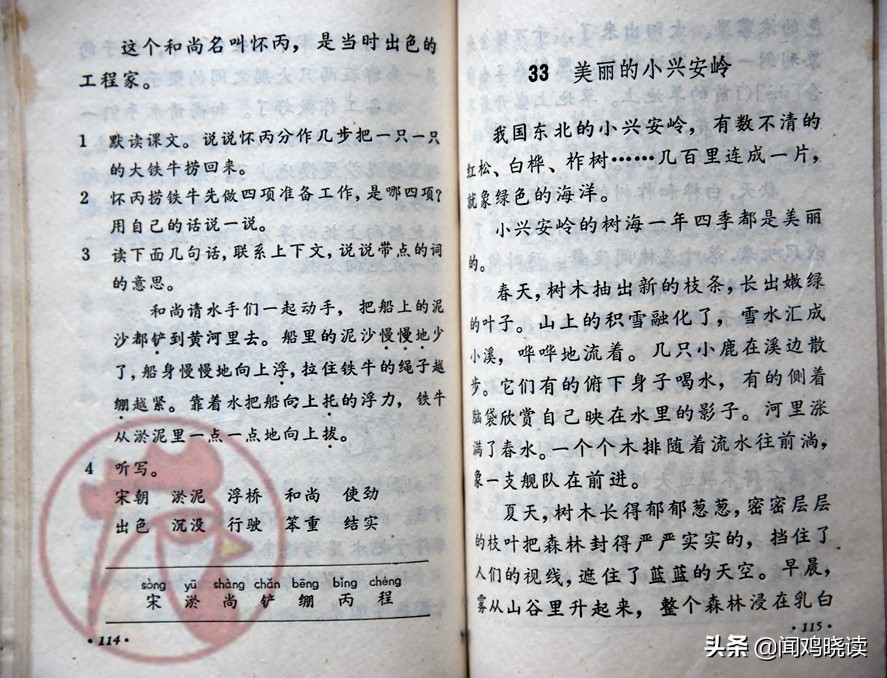 这个和尚名叫怀丙，是当时出色的
工程家。
1 默读课文。说说怀丙分作几步把一只一只
的大铁牛捞回来。
2 怀丙捞铁牛先做四项准备工作，是哪四项？
用自己的话说一说。
3 读下面几句话，联系上下文，说说带点的词
的意思。
和尚请水手们一起动手，把船上的泥
沙都铲到黄河里去。船里的泥沙慢慢地少
了，船身慢慢地向上浮，拉住铁牛的绳子越
绷越紧。靠着水把船向上托的浮力，铁牛
从淤泥里一点一点地向上拔。
4 听写。
宋朝 淤泥 浮桥 和尚 使劲
出色 沉没 行驶 笨重 结实
sòng yū shàng chǎn bēng bǐng chéng
宋 淤 尚 铲 绷 丙 程
·114·
33 美丽的小兴安岭
我国东北的小兴安岭，有数不清的
红松、白桦、柞树……几百里连成一片，
就象绿色的海洋。
小兴安岭的树海一年四季都是美丽
的。
春天，树木抽出新的枝条，长出嫩绿
的叶子。山上的积雪融化了，雪水汇成
小溪，哗哗地流着。几只小鹿在溪边散
步。它们有的俯下身子喝水，有的侧着
脑袋欣赏自己映在水里的影子。河里涨
满了春水。一个个木排随着流水往前淌，
象一支舰队在前进。
夏天，树木长得郁郁葱葱，密密层层
的枝叶把森林封得严严实实的，挡住了
人们的视线，遮住了蓝蓝的天空。早晨，
雾从山谷里升起来，整个森林浸在乳白
·115·
头条 @闻鸡晓读